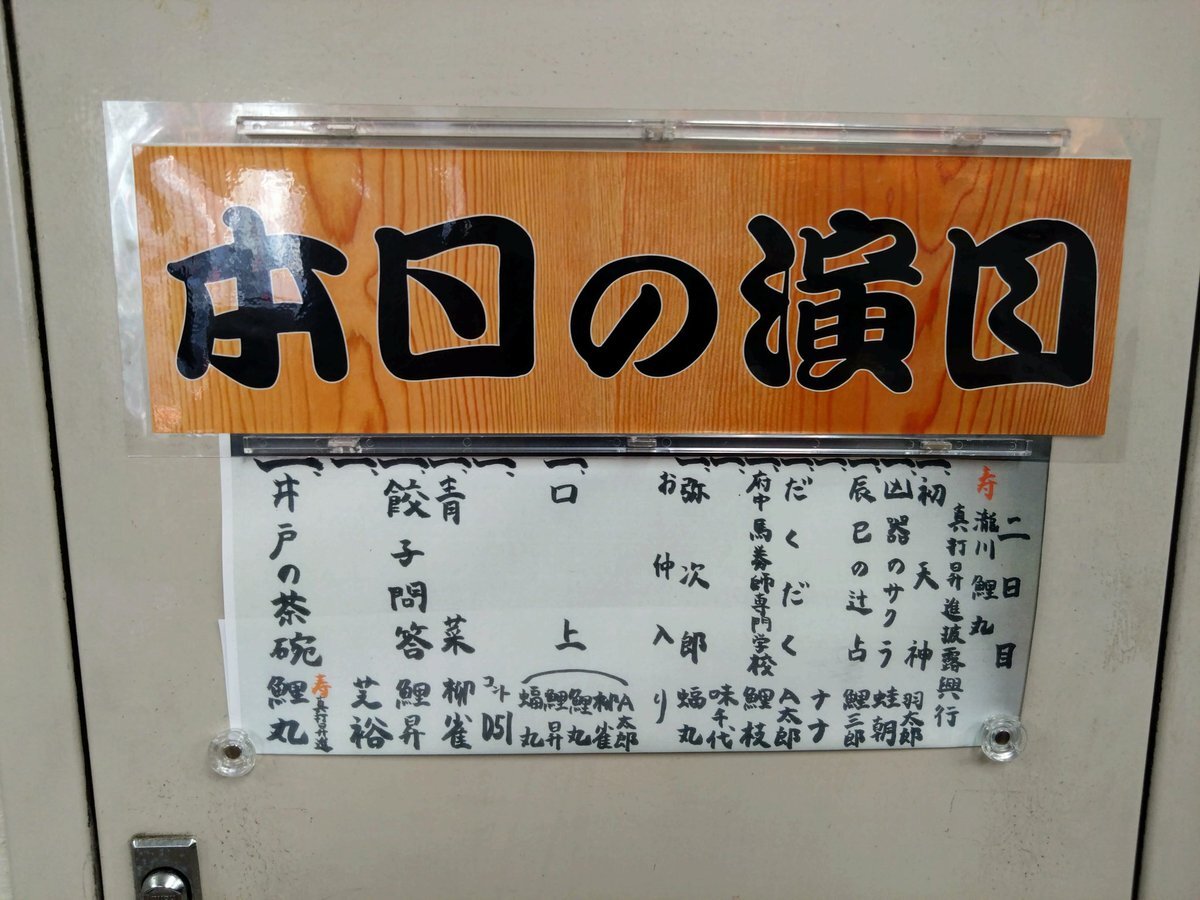 本日の演目
二日目
寿 瀧川 鯉丸
真打昇進披露興行
一、初天神 羽太郎
一、凶器のサクラ 蛙朝
一、辰巳の辻占 鯉三郎
一、 ナナ
一、だくだく A太郎
一、府中馬券師専門学校 鯉枝
一、 味千代
一、弥次郎 蝠丸
お仲入り
一、口上 A太郎 柳雀 鯉丸 鯉昇 蝠丸
一、 コント D51
一、青菜 柳雀
一、餃子問答 鯉昇
一、 艾裕
寿 真打昇進
一、井戸の茶碗 鯉丸